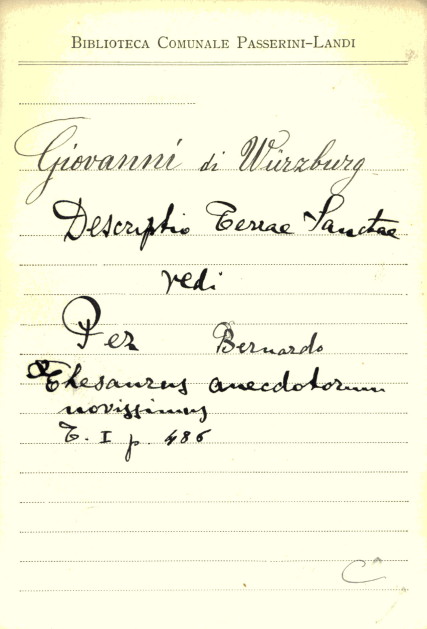 BIBLIOTECA COMUNALE PASSERINI-LANDI
Giovanni di Würzburg
Descriptio Terrae Sanctae
vedi
Pez Bernardo
Thesaurus anecdotorum
novissimus
T. I p. 486